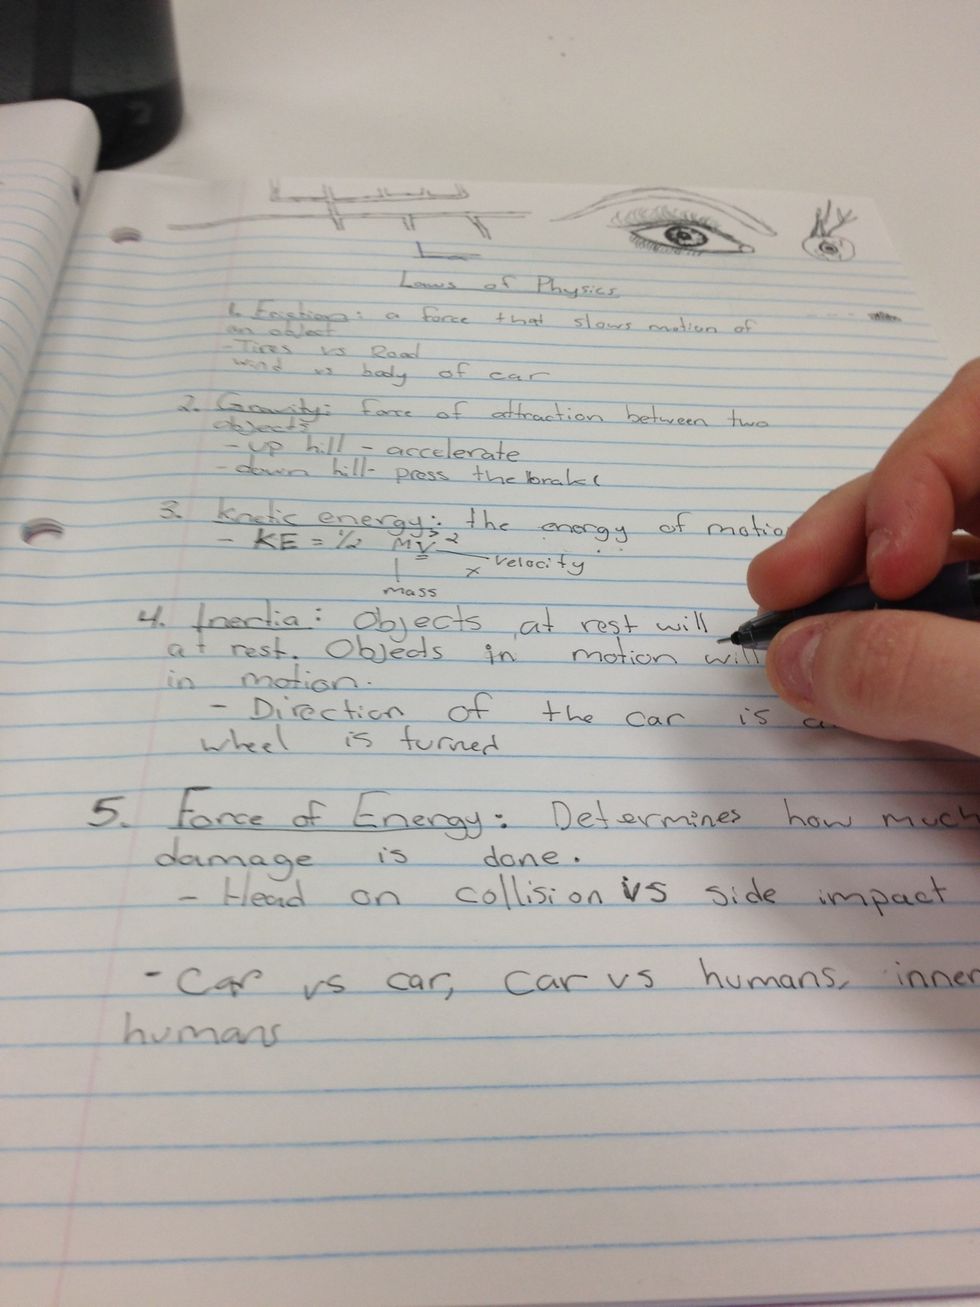 Laws of Physics
1. Friction: a force that slows motion of
an object
- Tires vs Road
wind vs body of car
2. Gravity: force of attraction between two
objects
- up hill - accelerate
- down hill - press the brake
3. kinetic energy: the energy of motio
- KE = 1/2 MV²
x velocity
mass
4. Inertia: Objects at rest will
at rest. Objects in motion will
in motion.
- Direction of the car is
wheel is turned
5. Force of Energy: Determines how much
damage is done.
- Head on collision vs side impact
- Car vs car, Car vs humans, inner
humans